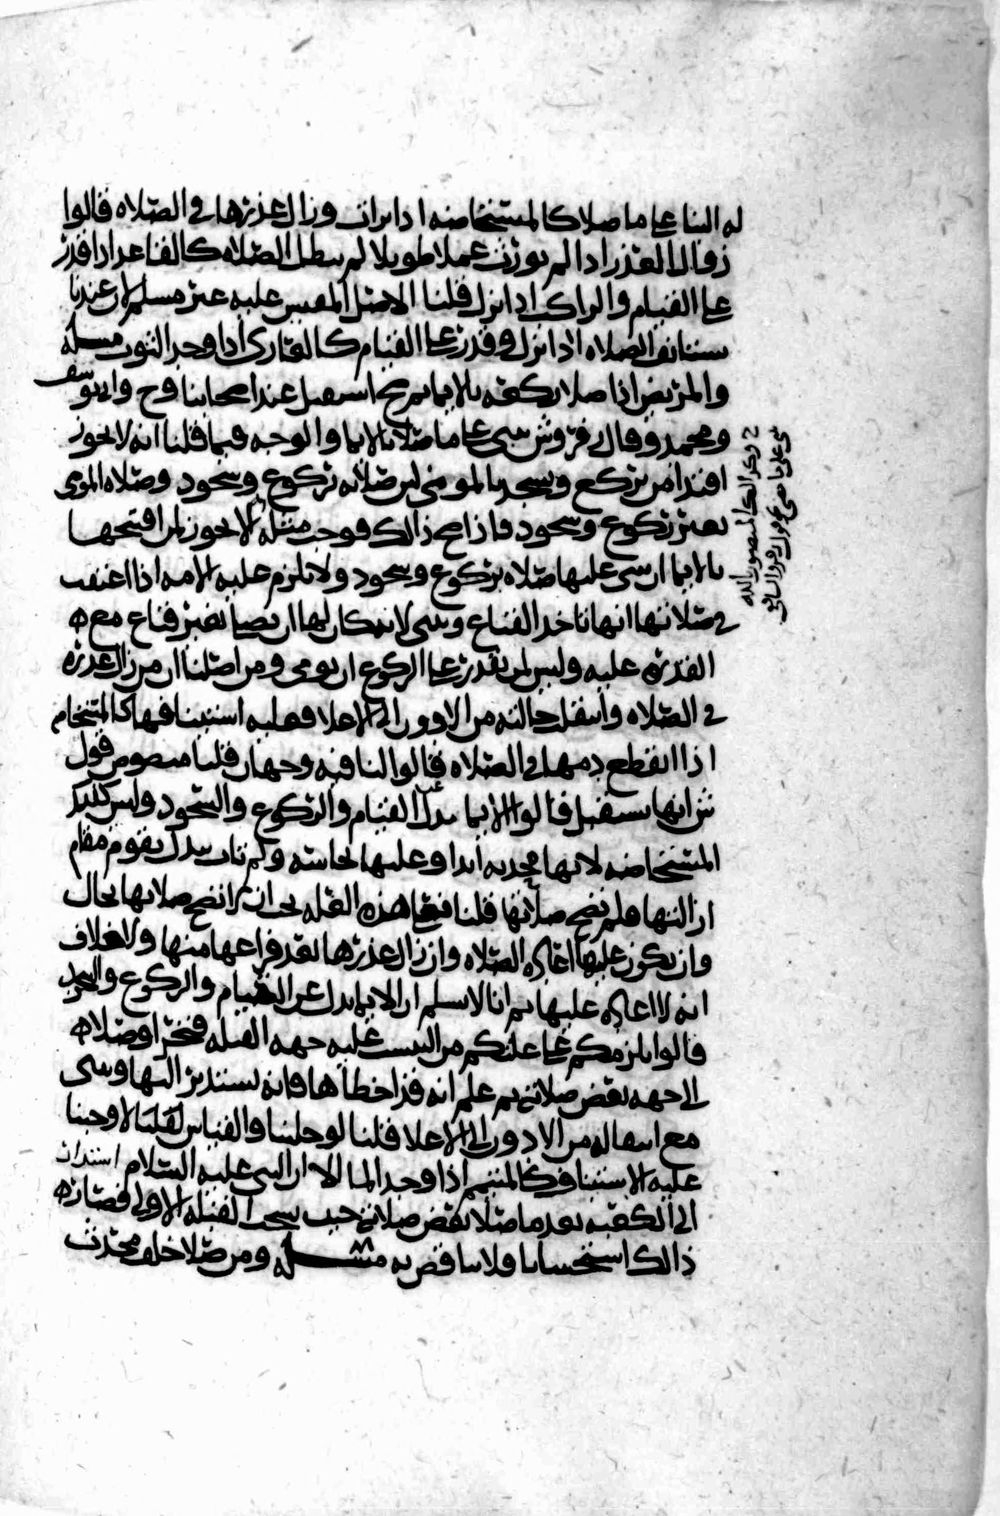 له البنا على ما صلا كالمستحاضه اذا برات وزال عذرها في الصلاه قالوا
زوال العذر اذا لم يورث عملا طويلا لم يبطل الصلاه كالقاعد اذا قدر
على القيام والراكب اذا نزل قلنا الاصل المقيس عليه غير مسلم لان عندنا
يستانف الصلاه اذا نزل وقدر على القيام كالعاري اذا وجد الثوب مسله
والمريض اذا صلا ركعه بالايما ثم صح استقبل عند اصحابنا وح وابو يوسف
ومحمد وقال زفر وش يبني على ما صلا بالايما والوجه فيما قلنا انه لا يجوز
اقتدا من يركع ويسجد بالمومي لان صلاته بركوع وسجود وصلاه المومي
بغير ركوع وسجود فاذا صح ذالك فوجب مثله الا يجوز لمن افتتحها
بالايما ان يبني عليها صلاه بركوع وسجود ولا يلزم عليه الامه اذا اعتقت
في صلاتها انها تاخذ القناع وتبني لانه كان لها ان تصلي بغير قناع مع
القدره عليه وليس لمن يقدر على الركوع ان يومي ومن اصلنا ان من زال عذره
في الصلاه وانتقل حالته من الادون الى الاعلا فعليه استينافها كالمستحاضه
اذا انقطع دمها في الصلاه قالوا لنا فيه وجهان قلنا منصوص قول
ش انها تستقبل قالوا الايما بدل عن القيام والركوع والسجود وليس كذلك
المستحاضه لانها محدثه ابدا وعليها نجاسه ولم تات ببدل يقوم مقام
ازالتها فلم تصح صلاتها قلنا فعلى هذه العله يجب ان لا تصح صلاتها بحال
وان يكون عليها اعاده الصلاه وان زال عذرها بعد فراغها منها ولا خلاف
انه لا اعاده عليها ثم انا لا نسلم ان الايما بدل عن القيام والركوع والسجود
قالوا يلزمكم على علتكم من التبست عليه جهه القبله فتحرا وصلا
الى جهه بعض صلاته ثم علم انه قد اخطاها فانه يستدير اليها ويبني
مع انتقاله من الادون الى الاعلا قلنا لو خلينا والقياس لقلنا لا وجبنا
عليه الاستيناف كالمتيمم اذا وجد الما الا ان النبي عليه السلام استدار
الى الكعبه بعد ما صلا بعض صلاته حيث نسخت القبله الاولى فصار
ذالك استحسانا فلا يناقض به مسله ومن صلا خلف محدث